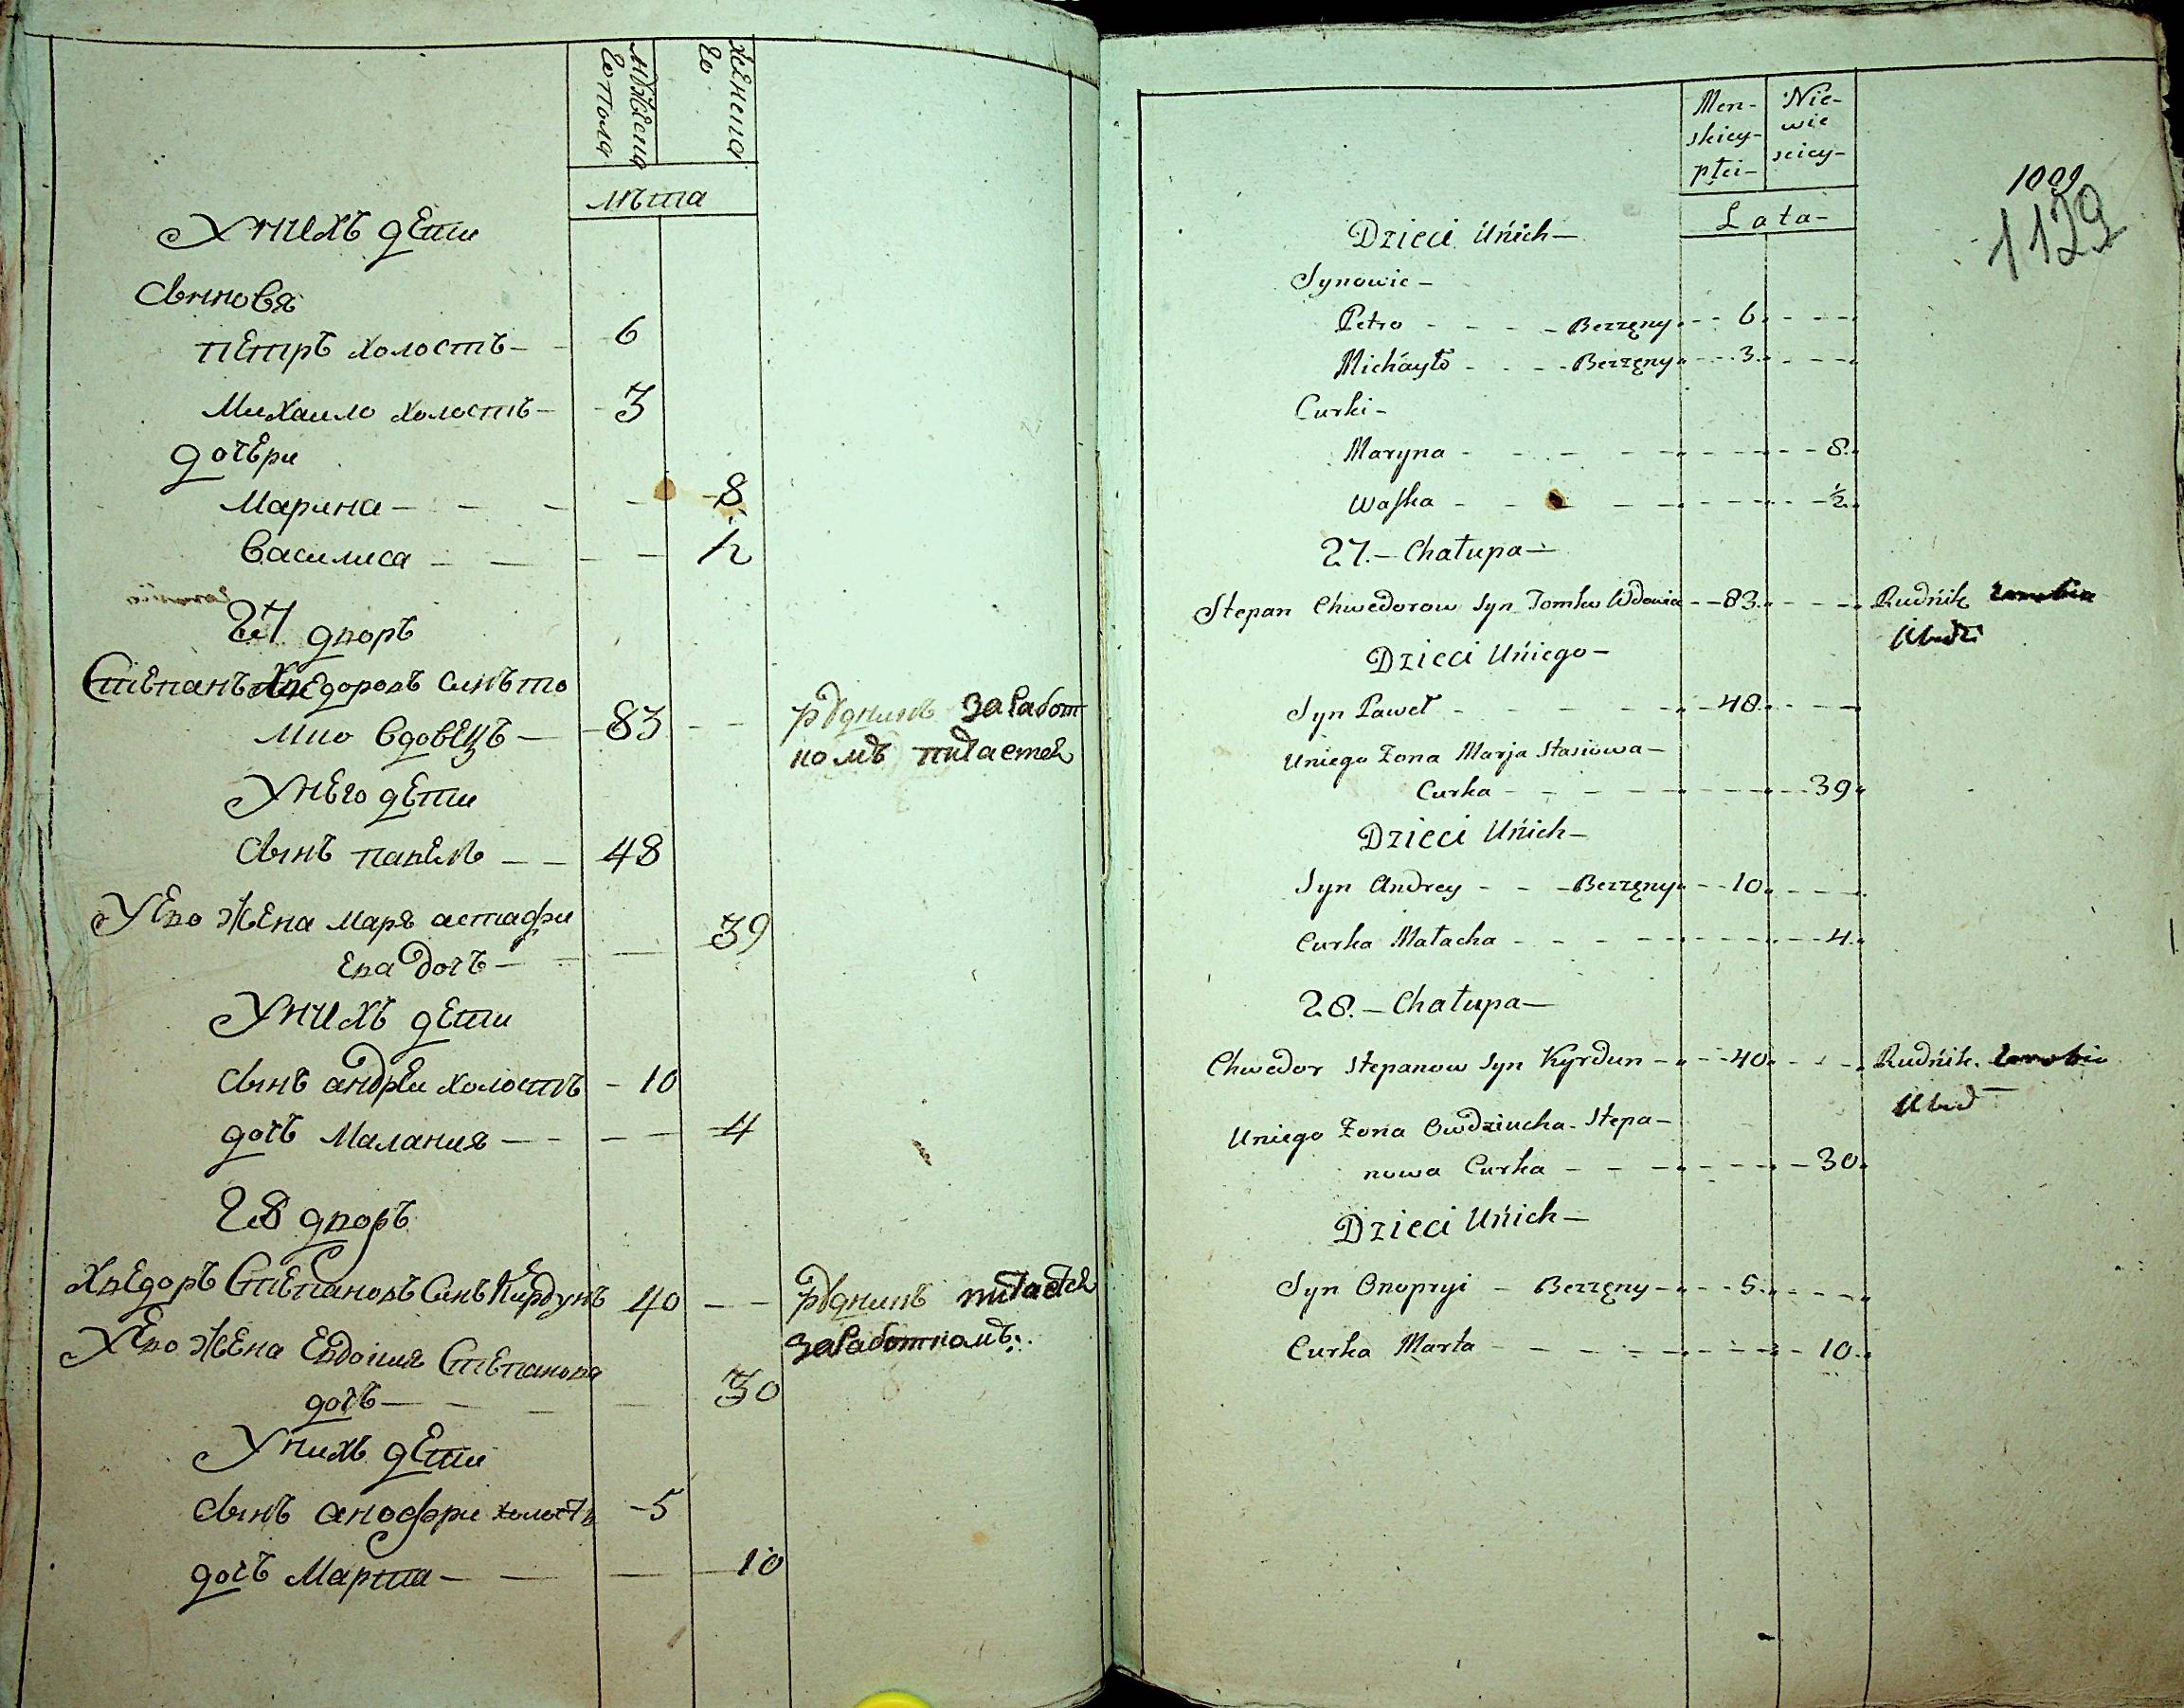 мужеска
го пола
женска
го
лѣта
У нихъ дети
Сыновя
петръ холостъ
6
Михаило холостъ
3
дочери
Марина
8
василиса
1/2
27 дворъ
Степанъ Хведоровъ синъ то
мко вдовецъ
83
рудникъ заработ
комъ питается
У него дети
Сынъ павелъ
48
У его жена маря астафи
ева дочъ
39
У нихъ дети
Сынъ андрѣи холостъ
10
дочъ Малания
4
28 дворъ
Хведоръ Степановъ Синъ Кирдунъ
40
рудникъ питается
заработкомъ
У его жена Евдокия Степанова
дочъ
30
У нихъ дети
Сынъ анофри холостъ
5
дочъ Марта
10
Men-
skiey-
płci-
Nie-
wie
sciey-
Lata-
1009
1129
Dzieci Unich-
Synowie-
Petro - - - - Bezzęny - - 6.
Michayło - - - - Bezzęny - - 3.
Curki-
Maryna - - - - 8.
Waska - - - - ½.
27.- Chałupa-
Stepan Chwedorow Syn Tomko Wdowiec - - 83. - - Rudnik
Dzieci Uniego-
Syn Paweł - - - - 48.
Uniego Zona Marja Stasiowa-
Curka - - - - 39
Dzieci Unich-
Syn Andrey - - - Bezzęny - - 10.
Curka Małacha - - - - 4.
28.- Chałupa-
Chwedor Stepanow Syn Kyrdun - - 40. - - Rudnik.
Uniego Zona Owdziucha Stepa-
nowa Curka - - - - 30.
Dzieci Unich-
Syn Onopryi - Bezzęny - - 5.
Curka Marta - - - - 10.